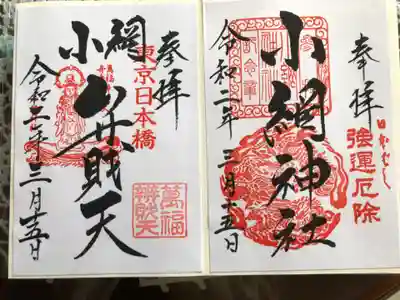 奉拝
強運厄除
小網神社
令和二年三月十五日
奉拝
東京日本橋
小網弁財天
萬福
辨財天
令和二年三月十五日